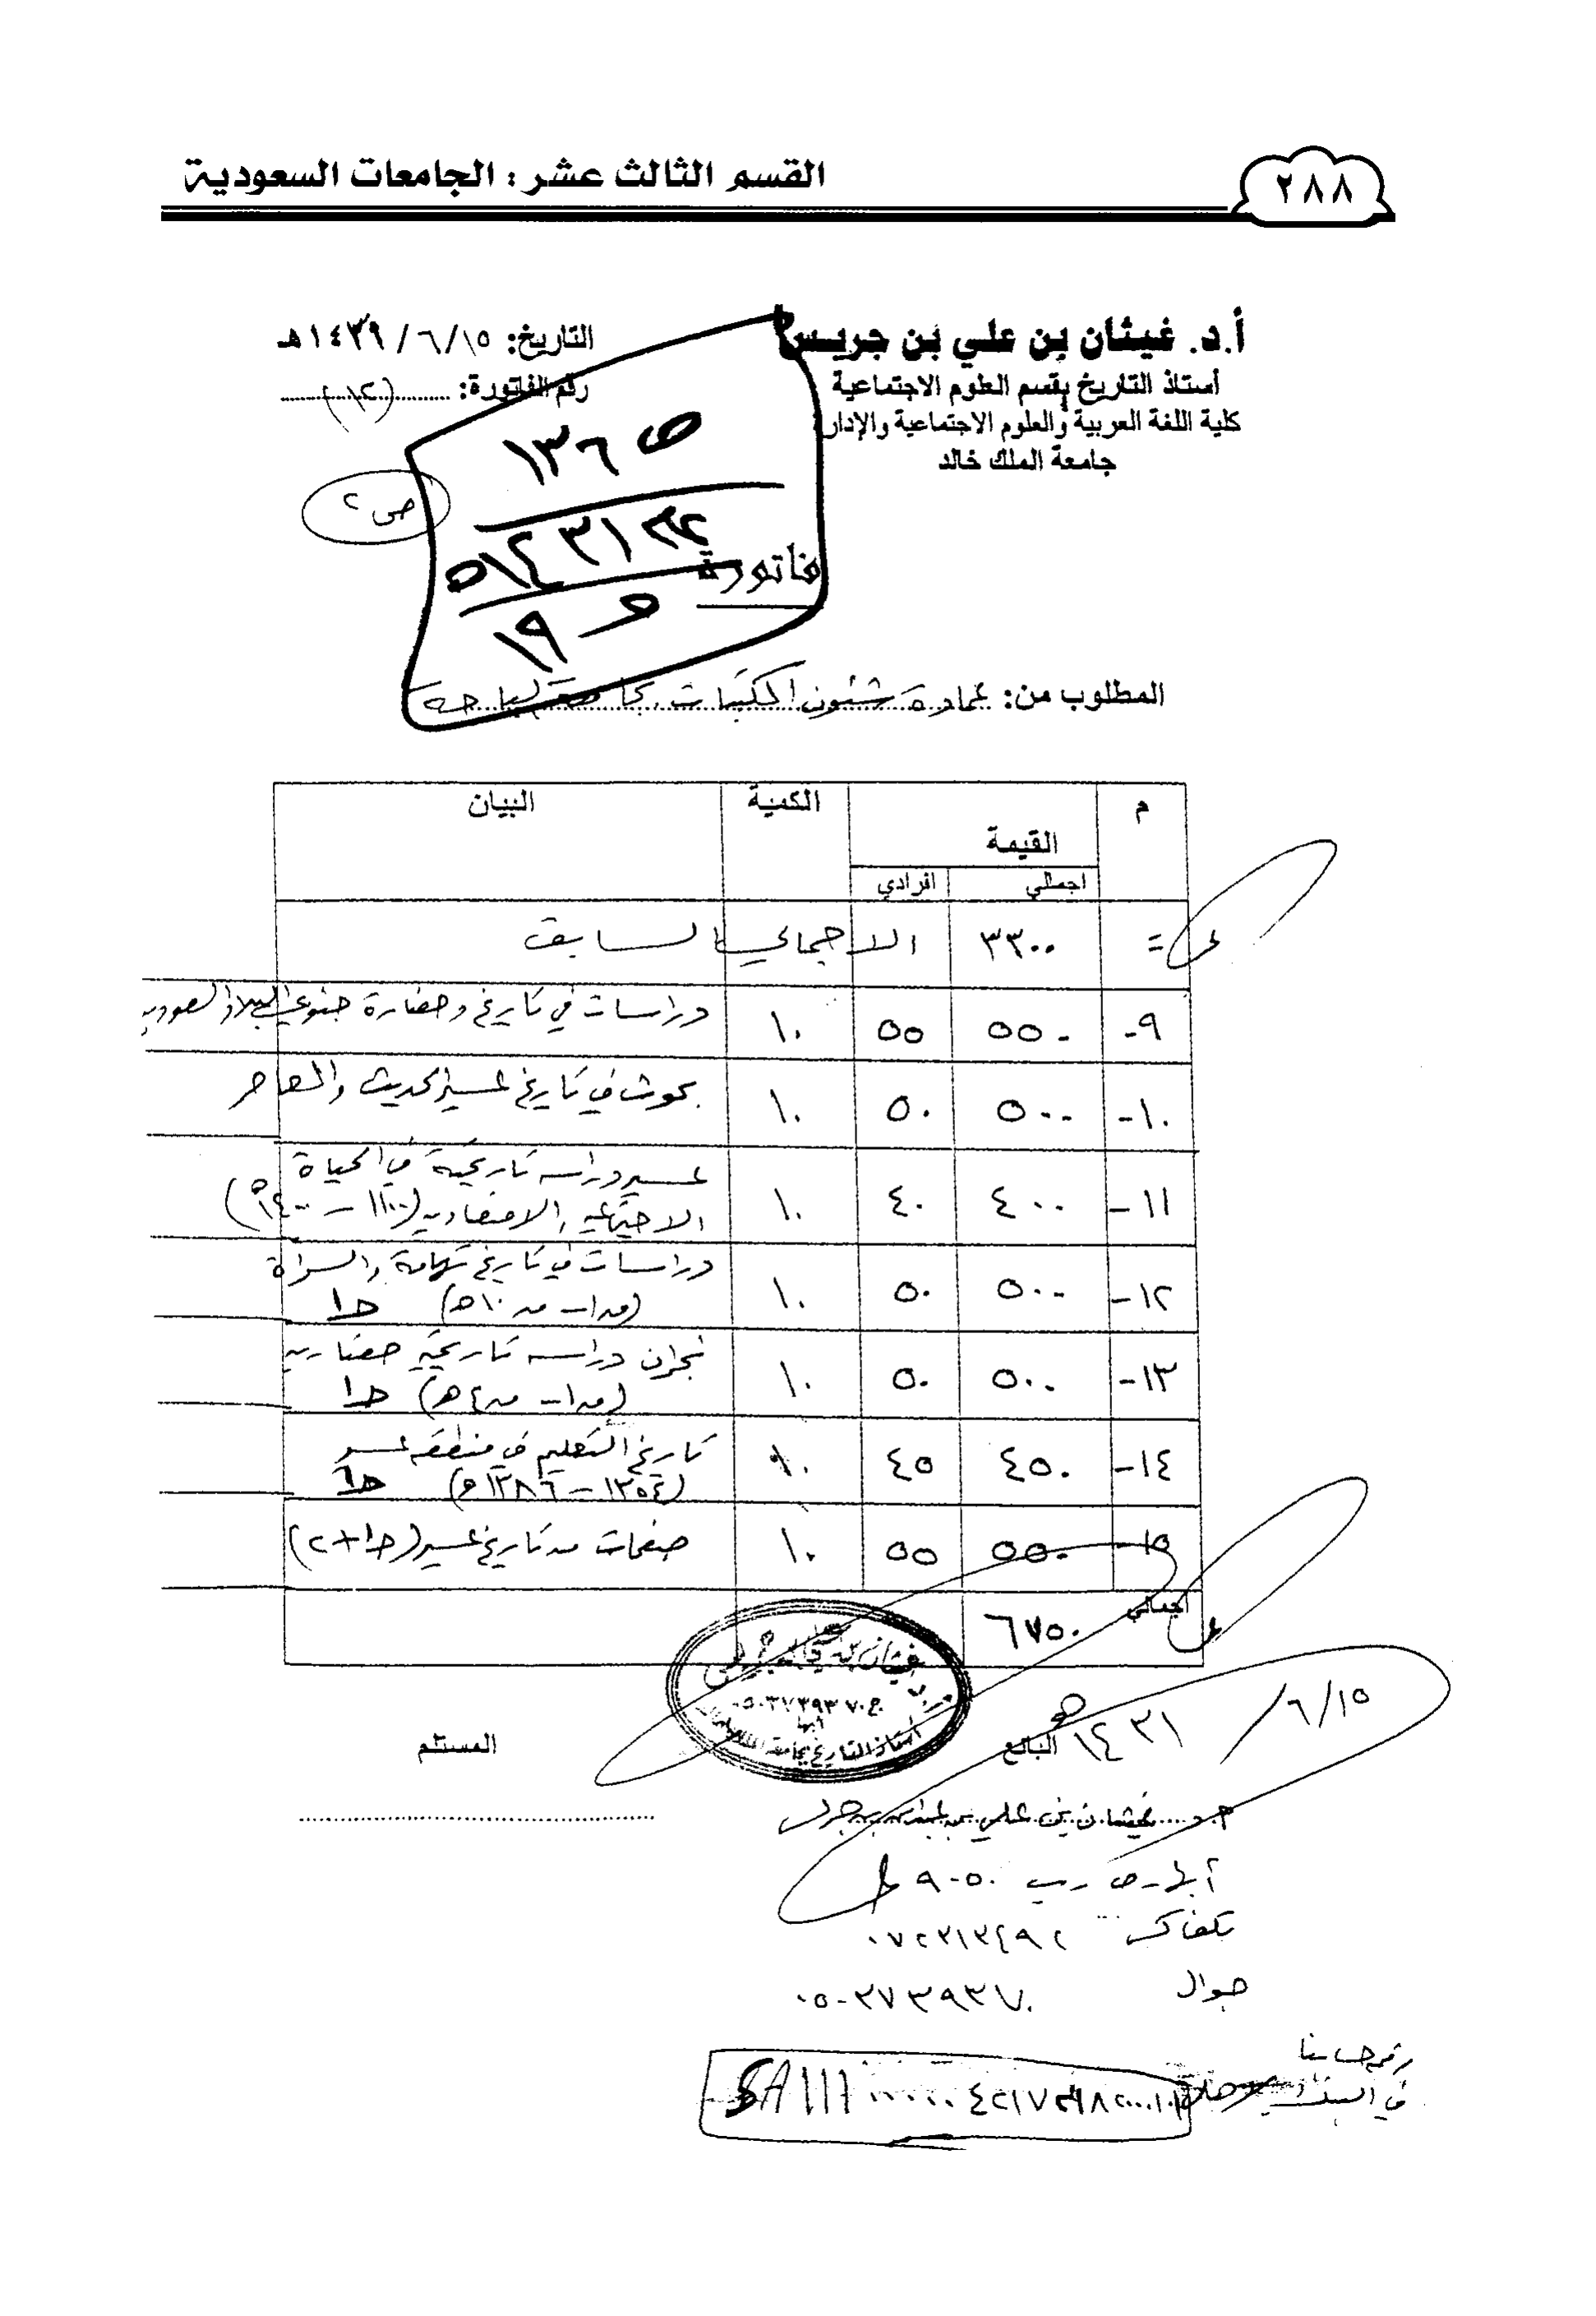 القسم الثالث عشر : الجامعات السعودية
٢٨٨
أ.د. غيثان بن علي بن جريس
أستاذ التاريخ بقسم العلوم الاجتماعية
كلية اللغة العربية والعلوم الاجتماعية والإدار
جامعة الملك خالد
التاريخ: ٦/١٥/ ١٤٣٩هـ
رقم الفاتورة: (١٢)
ص ٢
ص ١٣٦
١٩
فاتورة
المطلوب من: عمادة شئون المكتبات بجامعة الباحة
م القيمة الكمية البيان
اجمالي افرادي
٣٣٠٠ الاجمالي السابق
٩- ٥٥٠ ٥٥ ١٠ دراسات في تاريخ وحضارة جنوبي البلاد السعودية
١٠- ٥٠٠ ٥٠ ١٠ بحوث في تاريخ عسير الحديث والمعاصر
١١- ٤٠٠ ٤٠ ١٠ عسير دراسة تاريخية في الحياة
الاجتماعية والاقتصادية (١١٠٠ – ١٤٠٠هـ)
١٢- ٥٠٠ ٥٠ ١٠ دراسات في تاريخ تهامة والسراة
(ق١ – ق١٠هـ) ج١
١٣- ٥٠٠ ٥٠ ١٠ نجران دراسة تاريخية حضارية
(ق١ – ق٤هـ) ج١
١٤- ٤٥٠ ٤٥ ١٠ تاريخ التعليم في منطقة عسير
(١٣٥٤ – ١٣٨٦هـ) ج١
١٥- ٥٥٠ ٥٥ ١٠ صفحات من تاريخ عسير (ج١+٢)
اجمالي ٦٧٥٠
٦/١٥/ ١٤٣١هـ
البائع
المستلم
أ.د. غيثان بن علي بن عبدالله بن جريس
أبها – ص ب ٩٠٥٠
تلفاكس ٠٧٢٣١٣٤٩٢
جوال ٠٥٠٣٧٣٩٣٧٠
رقم حسابنا
في البنك